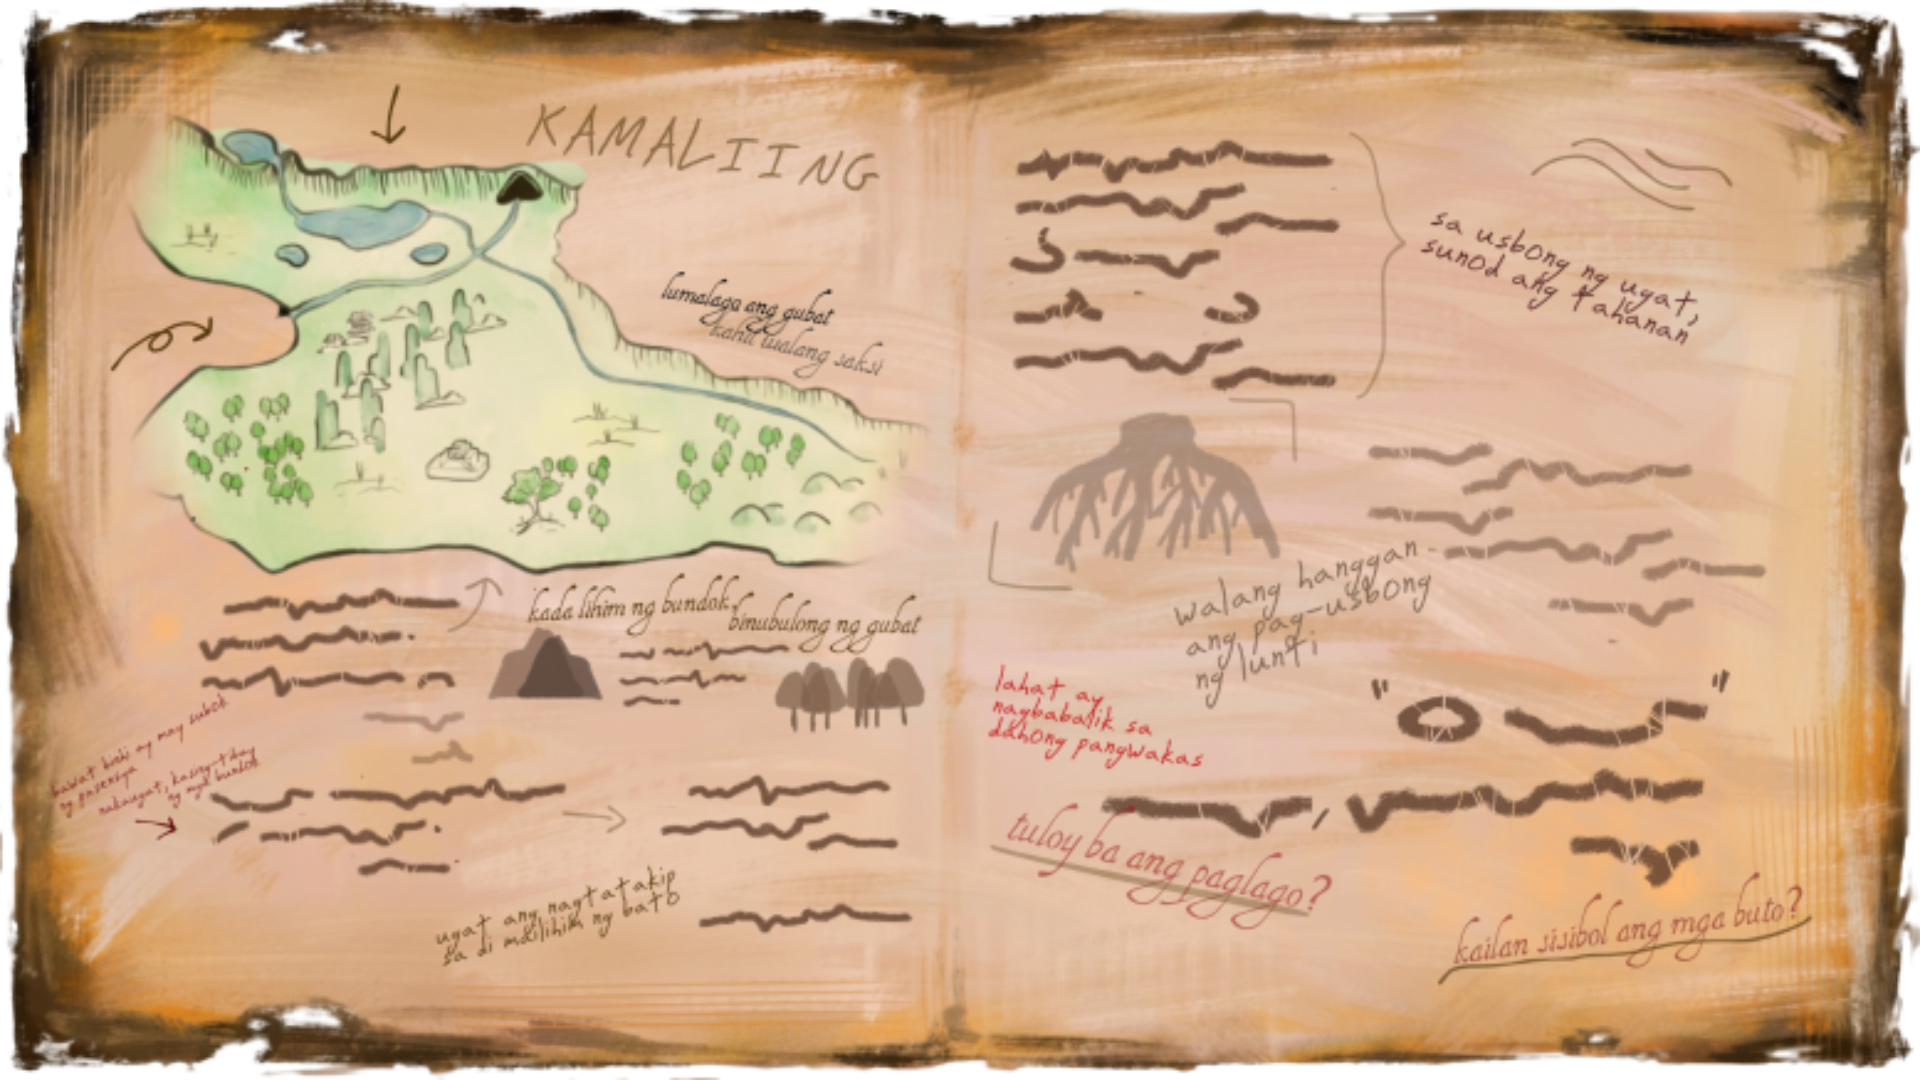 KAMALIING
lumalago ang gubat
kahit walang saksi
kada lihim ng bundok,
binubulong ng gubat
bawat binhi ay may subok
ng pasensya
nakaugat, kasing-tibay
ng mga bundok
ugat ang nagtatakip
sa di malilihim ng bato
sa usbong ng ugat,
sunod ang tahanan
walang hanggan
ang pag-usbong
ng lunti
lahat ay
nagbabalik sa
dahong pangwakas
tuloy ba ang paglago?
kailan sisibol ang mga buto?